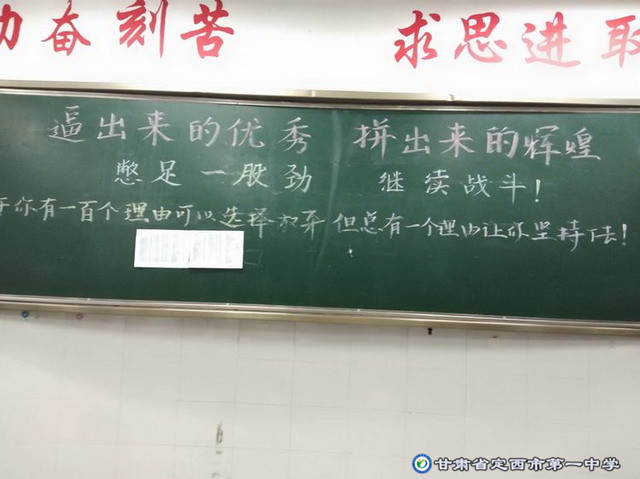 奋刻苦 求思进取
逼出来的优秀 拼出来的辉煌
憋足一股劲 继续战斗！
你有一百个理由可以选择放弃 但总有一个理由让你坚持下去！
甘肃省定西市第一中学